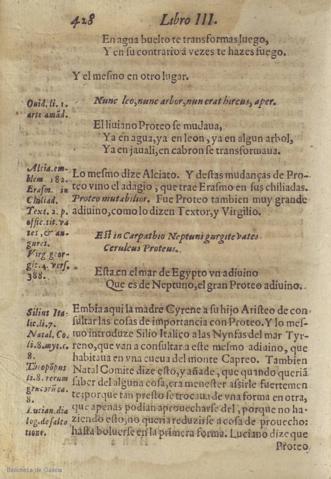 428 Libro III.
En agua buelto te transformas luego,
Y en su contrario á vezes te hazes fuego.
Y el mesmo en otro lugar.
Ouid. li. 1.
arte amãd.
Nunc leo, nunc arbor, nun erat hircus, aper.
El liuiano Proteo se mudaua,
Ya en agua, ya en leon, ya en algun arbol,
Ya en jauali, en cabron se transformaua.
Alcia. em-
blem. 182.
Erasm. in
Chiliad.
Text. 2. p.
offic. tit. va
tes, & au-
gures.
Virg geor-
gic. 4. vers.
388.
Lo mesmo dize Alciato. Y destas mudanças de Pro-
teo vino el adagio, que trae Erasmo en sus chiliadas.
Proteo mutabilior. Fue Proteo tambien muy grande
adiuino, como lo dizen Textor, y Virgilio.
Est in Carpathio Neptuni gurgite vates
Ceruleus Proteus.
Esta en el mar de Egypto vn adiuino
Que es de Neptuno, el gran Proteo adiuino.
Silius Ita-
lic. li. 7.
Natal. Co
li. 8. myt. c.
8.
Theopõpus
li. 8. rerum
grecarũ ca.
8.
Lucian. dia
log. de salta
tione.
Embia aqui la madre Cyrene a su hijo Aristeo de con-
sultar las cosas de importancia con Proteo. Y lo mes-
mo introduze Silio Italico a las Nynfas del mar Tyr-
reno, que van a consultar a este mesmo adiuino, que
habitaua en vna cueua del monte Capreo. Tambien
Natal Comite dize esto, y añade, que quando queriã
saber del alguna cosa, era menester assirle fuertemen
te: porque tan presto se trocaua de vna forma en otra,
que apenas podian aprouecharse del, porque no ha-
ziendo esto, no queria reduzirse a cosa de prouecho:
hasta boluerse en la primera forma. Luciano dize que
Proteo
Biblioteca de Galicia